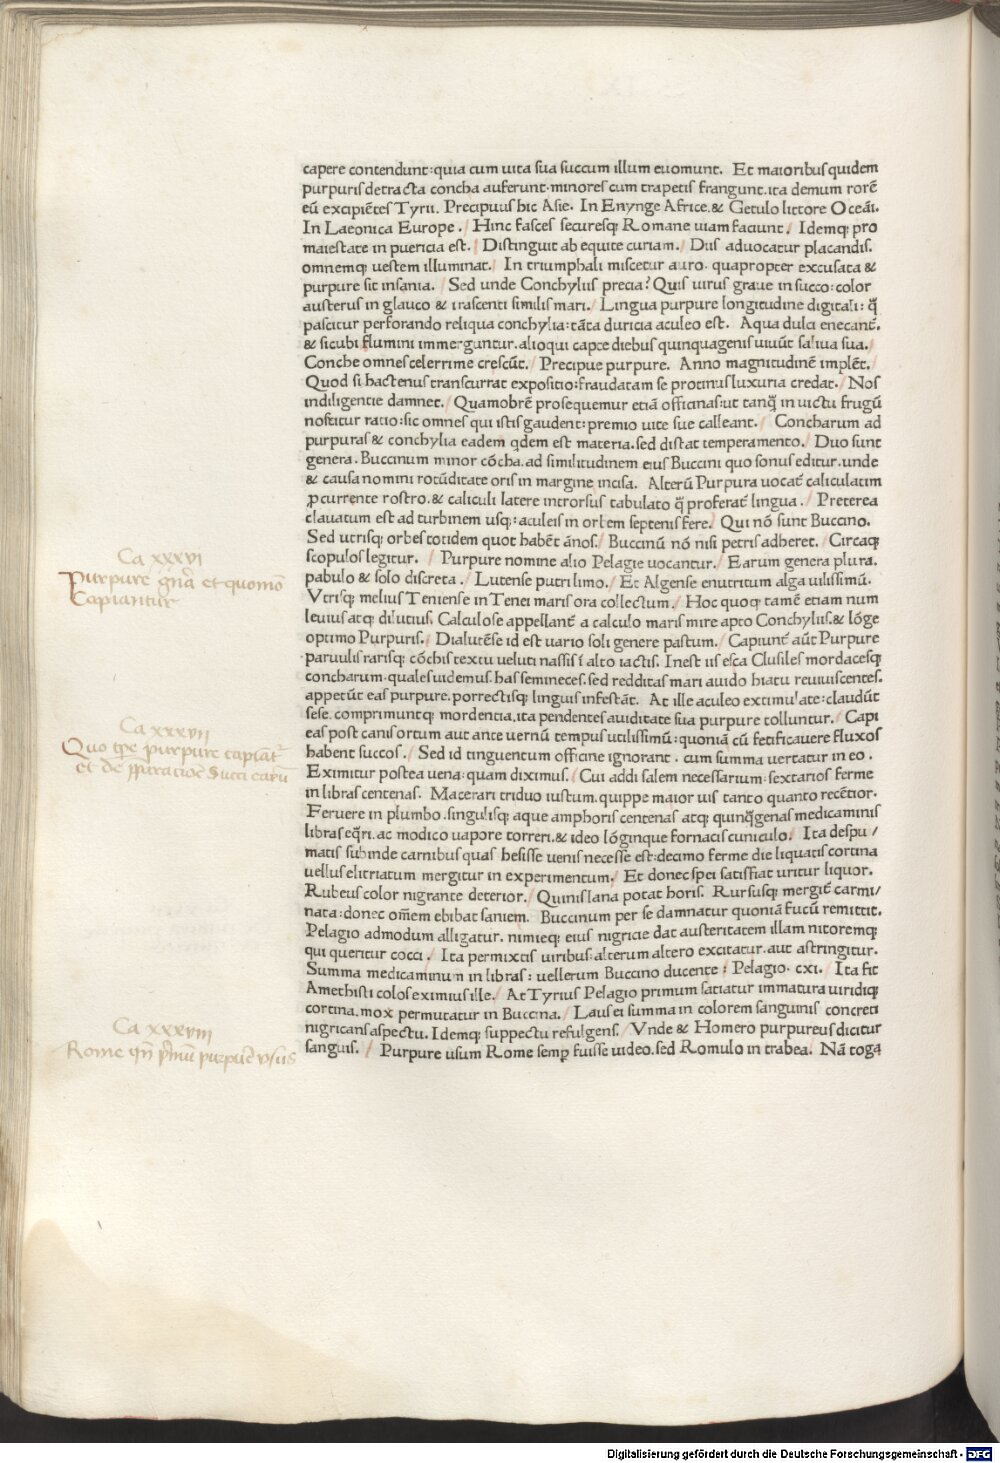 capere contendunt: quia cum uita sua succum illum euomunt. Et maioribus quidem
purpuris detracta concha auferunt. minores cum trapetis frangunt. ita demum rorē
eū excipiētes Tyrii. Precipuus hic Asie. In Enynge Africe. & Getulo littore Oceāi.
In Laeonica Europe. / Hinc fasces securesq; Romane uiam faciunt. / Idemq; pro
maiestate in puericia est. / Distinguit ab equite curiam. / Diis aduocatur placandis.
omnemq; uestem illuminat. / In triumphali miscetur auro. quapropter excusata &
purpure sit insania. / Sed unde Conchyliis precia? Quis uirus graue in succo: color
austerus in glauco & irascenti similis mari. / Lingua purpure longitudine digitali: q̄
pascitur perforando reliqua conchylia: tāta duricia aculeo est. Aqua dulci enecant̄.
& sicubi flumini immerguntur. alioqui capte diebus quinquagenis uiuūt saliua sua. /
Conche omnes celerrime crescūt. / Precipue purpure. Anno magnitudinē implēt. /
Quod si hactenus transcurrat expositio: fraudatam se protinus luxuria credat. / Nos
indiligentie damnet. / Quamobrē prosequemur etiā officinas: ut tanq̄ in uictu frugū
noscitur ratio: sic omnes qui istis gaudent: premio uite sue calleant. / Concharum ad
purpuras & conchylia eadem qdem est materia. sed distat temperamento. / Duo sunt
genera. Buccinum minor cōcha. ad similitudinem eius Buccini quo sonus editur. unde
& causa nomini rotūditate oris in margine incisa. Alterū Purpura uocat̄ caliculatim
ꝓcurrente rostro. & caliculi latere introrsus tabulato q̄ proferat̄ lingua. / Preterea
clauatum est ad turbinem usq;: aculeis in orbem septenis fere. / Qui nō sunt Buccino.
Sed utrisq; orbes totidem quot habēt ānos. / Buccinū nō nisi petris adheret. / Circaq;
scopulos legitur. / Purpure nomine alio Pelagie uocantur. / Earum genera plura.
pabulo & solo discreta. / Lutense putri limo. / Et Algense enutritum alga uilissimū.
Vtrisq; melius Teniense in Tenei maris ora collectum. / Hoc quoq; tamē etiam num
leuius atq; dilutius. Calculose appellant̄ a calculo maris mire apto Conchyliis. & lōge
optimo Purpuris. / Dialutēse id est uario soli genere pastum. / Capiunt̄ aūt Purpure
paruulis rarisq; cōchis textu ueluti nassis ī alto iactis. Inest iis esca Clusiles mordacesq;
concharum. quales uidemus. has semineces. sed redditas mari auido hiatu reuiuiscentes.
appetūt eas purpure. porrectisq; linguis infestāt. At ille aculeo extimulate: claudūt
sese. comprimuntq; mordentia. ita pendentes auiditate sua purpure tolluntur. / Capi
eas post canis ortum aut ante uernū tempus utilissimū: quoniā cū fetificauere fluxos
habent succos. / Sed id tinguentum officine ignorant. cum summa uertatur in eo.
Eximitur postea uena: quam diximus. / Cui addi salem necessarium: sextarios ferme
in libras centenas. Macerari triduo iustum. quippe maior uis tanto quanto recētior.
Feruere in plumbo. singulisq; aque amphoris centenas atq; quinq̄genas medicaminis
libras eq̄ri. ac modico uapore torreri. & ideo lōginque fornacis cuniculo. / Ita despu/
matis subinde carnibus quas hesisse uenis necesse est: decimo ferme die liquatis cortina
uellus elitriatum mergitur in experimentum. / Et donec spei satisfiat uritur liquor.
Rubeus color nigrante deterior. / Quinis lana potat horis. Rursusq; mergit̄ carmi/
nata: donec om̄em ebibat saniem. Buccinum per se damnatur quoniā fucū remittit.
Pelagio admodum alligatur. nimieq; eius nigricie dat austeritatem illam nitoremq;
qui queritur cocci. / Ita permixtis uiribus: alterum altero excitatur. aut astringitur.
Summa medicaminum in libras: uellerum Buccino ducente: Pelagio. cxi. / Ita fit
Amethisti colos eximius ille. / At Tyrius Pelagio primum satiatur immatura uiridiq;
cortina. mox permutatur in Buccina. / Laus ei summa in colorem sanguinis concreti
nigricans aspectu. Idemq; suppectu refulgens. / Vnde & Homero purpureus dicitur
sanguis. / Purpure usum Rome semꝑ fuisse uideo. sed Romulo in trabea. Nā toga
Ca xxxvi
Purpure gn̄a et quomō
Capiantur
Ca xxxvii
Quo tp̄e purpure capiāt̄
et de p̄paratiōe Succi earū
Ca xxxviii
Rome qn̄ p̄mū purpure
Digitalisierung gefördert durch die Deutsche Forschungsgemeinschaft - DFG